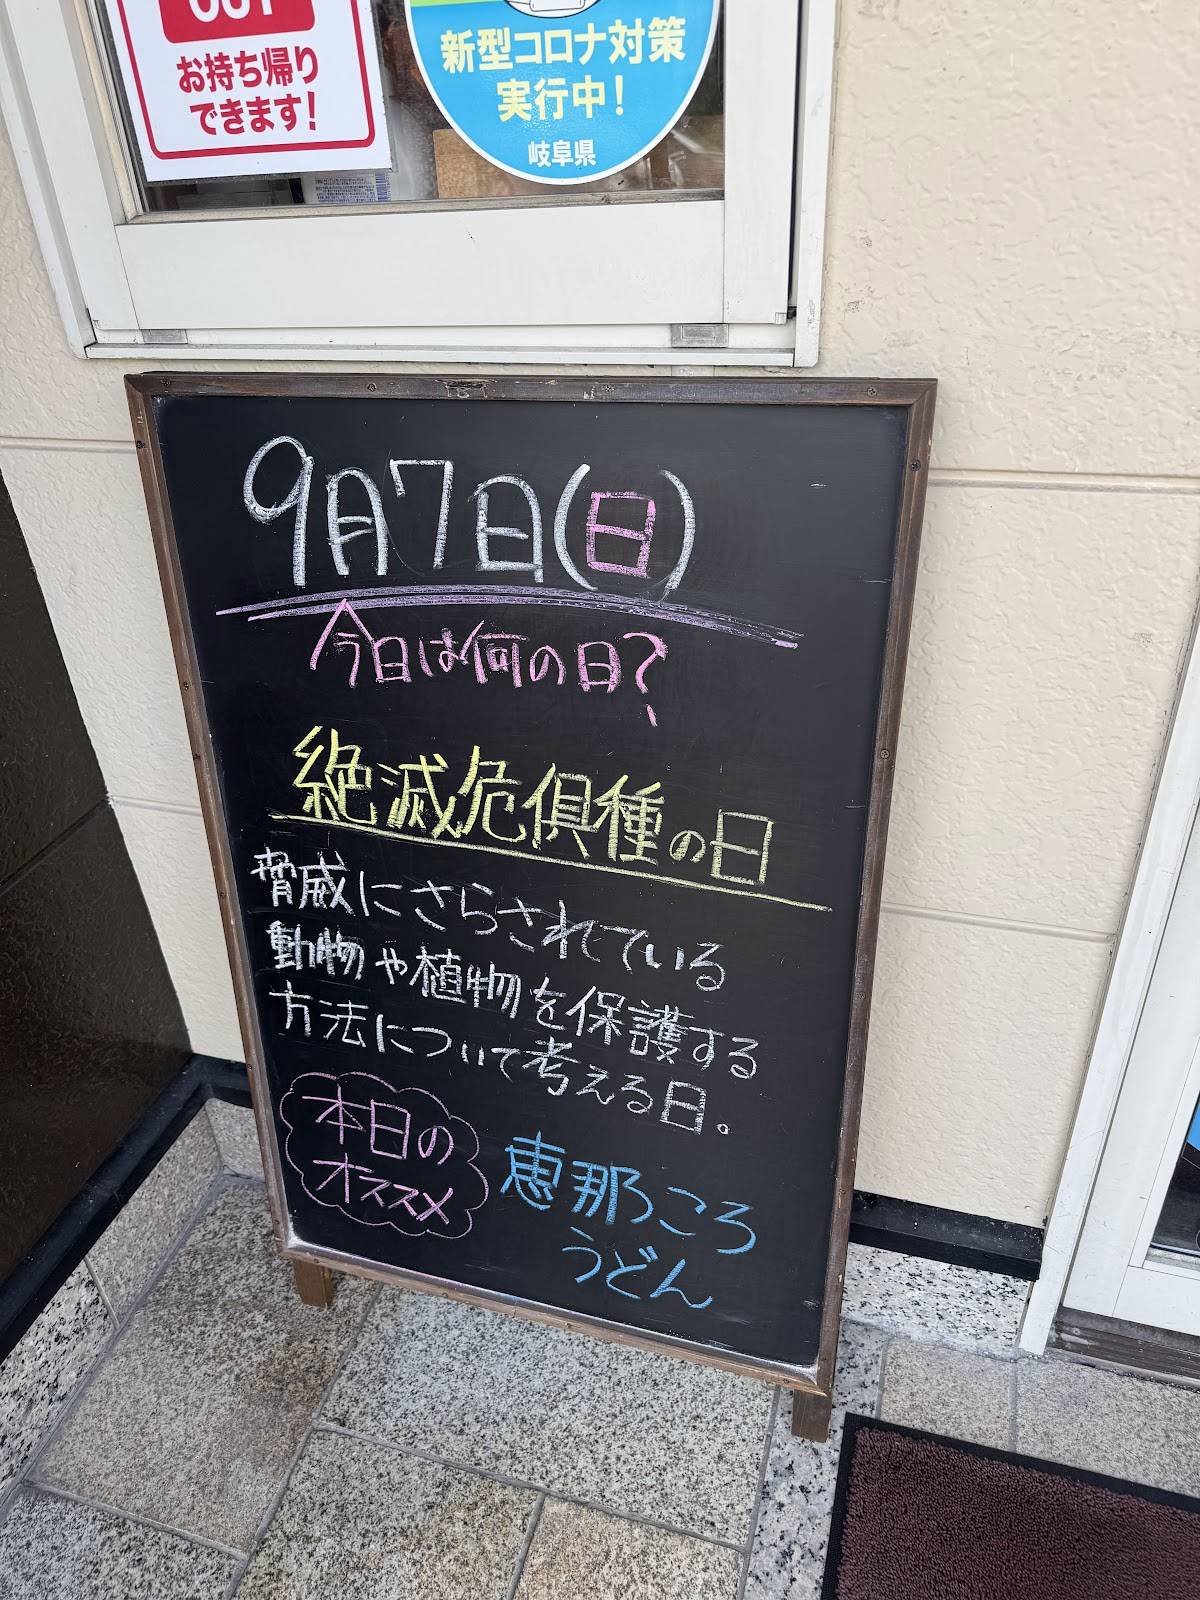 OUT
お持ち帰り
できます!
新型コロナ対策
実行中!
岐阜県
9月7日(日)
今日は何の日?
絶滅危俱種の日
脅威にさらされている
動物や植物を保護する
方法について考える日。
本日の
オススメ
恵那ころ
うどん